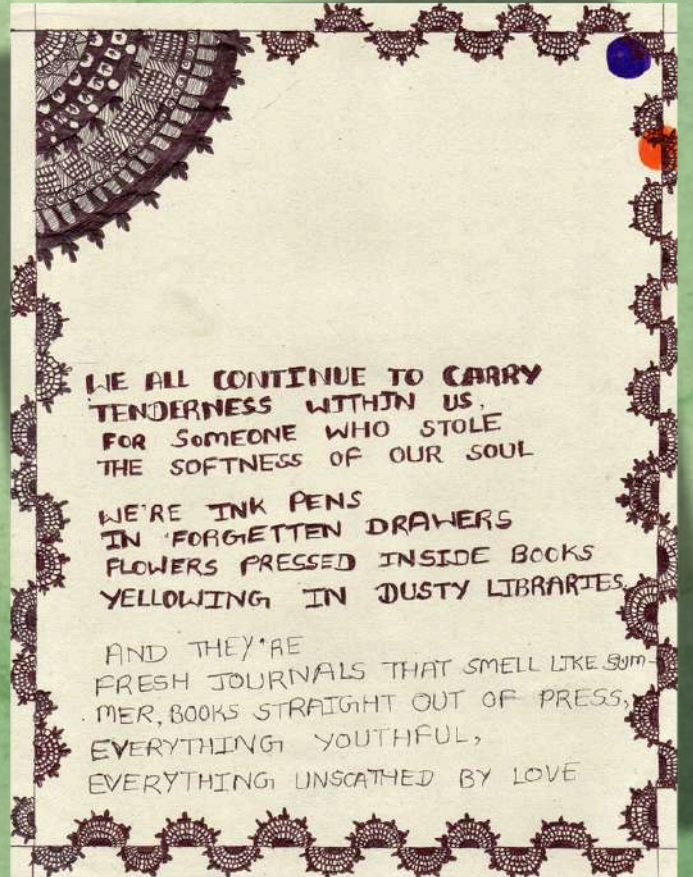 WE ALL CONTINUE TO CARRY
TENDERNESS WITHIN US,
FOR SOMEONE WHO STOLE
THE SOFTNESS OF OUR SOUL
WE'RE INK PENS
IN FORGETTEN DRAWERS
FLOWERS PRESSED INSIDE BOOKS
YELLOWING IN DUSTY LIBRARIES,
AND THEY'RE
FRESH JOURNALS THAT SMELL LIKE SUM-
MER, BOOKS STRAIGHT OUT OF PRESS,
EVERYTHING YOUTHFUL,
EVERYTHING UNSCATHED BY LOVE